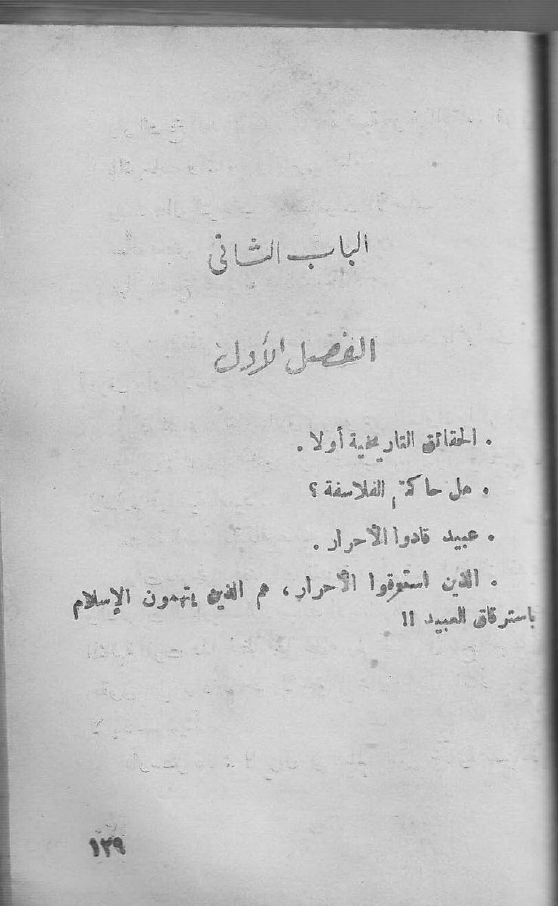 الباب الثانى
الفصل الأول
. الحقائق التاريخية أولا .
. هل حاكمتم الفلاسفة ؟
. عبيد قادوا الأحرار .
. الذين استرقوا الأحرار ، هم الذين يتهمون الإسلام
باسترقاق العبيد !!
١٣٩